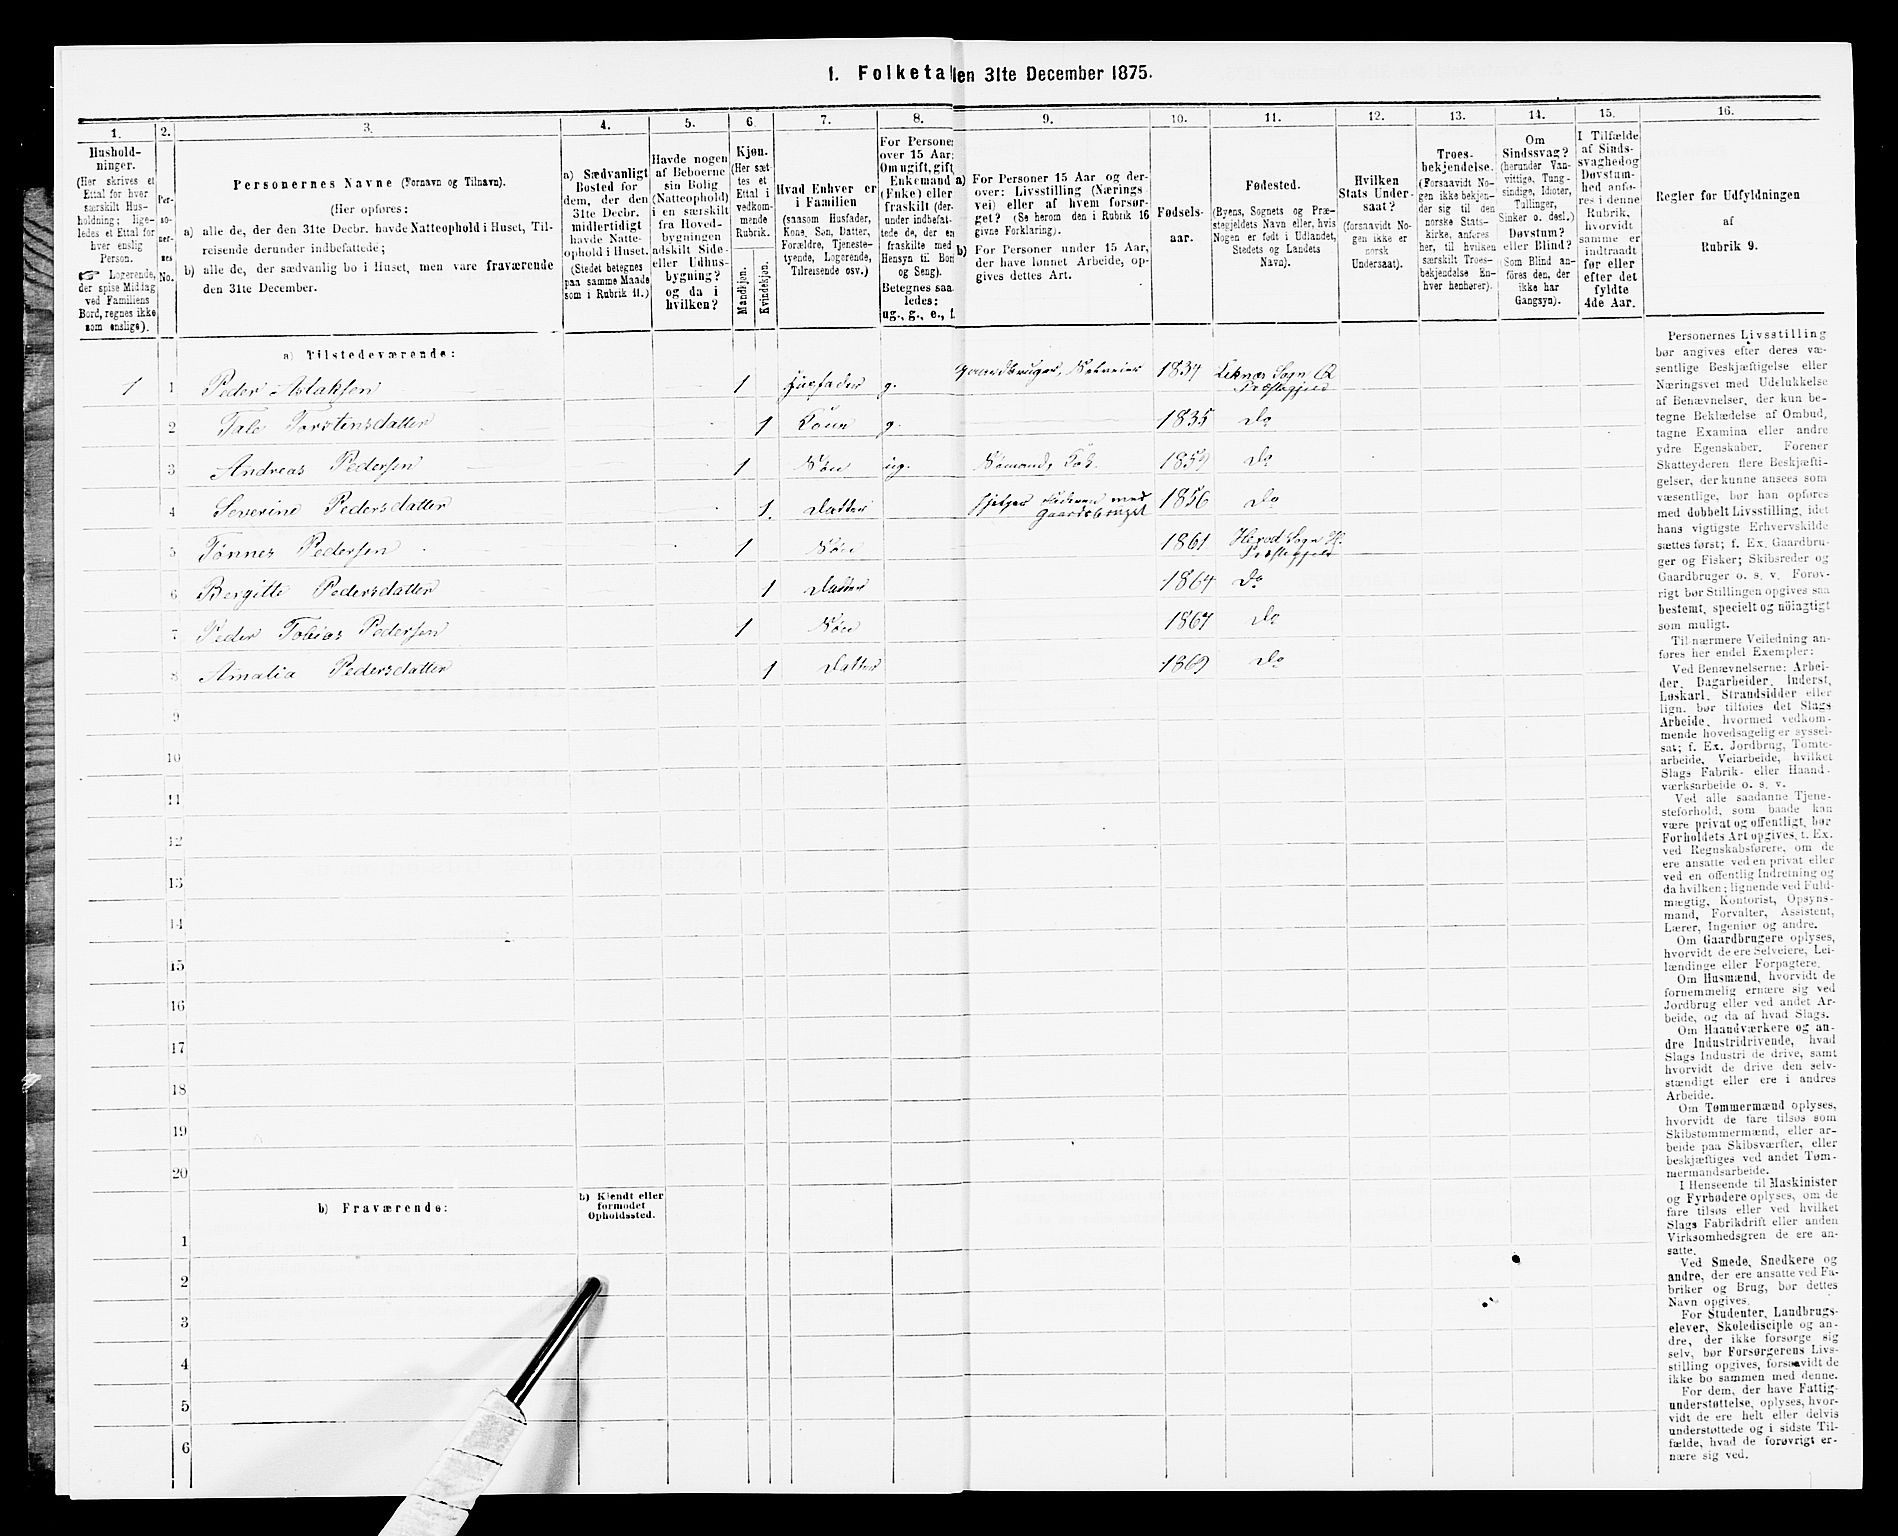 1. Folketal den 31te December 1875.
1.
Hushold-
ninger.
(Her skrives et
Ettal for hver
særskilt Hus-
holdning; lige-
ledes et Ettal for
hver enslig
Person.
☞ Logerende,
der spise Middag
ved Familiens
Bord, regnes ikke
som enslige).
2.
Per-
so-
ner-
nes
No.
3.
Personernes Navne (Fornavn og Tilnavn).
(Her opføres:
a) alle de, der den 31te Decbr. havde Natteophold i Huset, Til-
reisende derunder indbefattede;
b) alle de, der sædvanlig bo i Huset, men vare fraværende
den 31te December.
4.
a) Sædvanligt
Bosted for
dem, der den
31te Decbr.
midlertidigt
havde Natte-
ophold i Huset.
(Stedet betegnes
paa samme Maade
som i Rubrik 11.)
5.
Havde nogen
af Beboerne
sin Bolig
(Natteophold)
i en særskilt
fra Hoved-
bygningen
adskilt Side-
eller Udhus-
bygning?
og da i
hvilken?
6.
Kjøn.
(Her sæt-
tes et
Ettal i
vedkom-
mende
Rubrik.
Mandkjøn.
Kvindekjøn.
7.
Hvad Enhver er
i Familien
(saasom Husfader,
Kone, Søn, Datter,
Forældre, Tjeneste-
tyende, Logerende,
Tilreisende osv.)
8.
For Personer
over 15 Aar:
Om ugift, gift,
Enkemand
(Enke) eller
fraskilt (der-
under indbefat-
tede de, der ere
fraskilte med
Hensyn til Bord
og Seng).
Betegnes saa-
ledes:
ug., g., e., f.
9.
a) For Personer 15 Aar og der-
over: Livsstilling (Nærings-
vei) eller af hvem forsør-
get? (Se herom den i Rubrik 16
givne Forklaring).
b) For Personer under 15 Aar,
der have lønnet Arbeide, op-
gives dettes Art.
10.
Fødsels-
aar.
11.
Fødested.
(Byens, Sognets og Præ-
stegjeldets Navn eller, hvis
Nogen er født i Udlandet,
Stedets og Landets
Navn).
12.
Hvilken
Stats Under-
saat?
(forsaavidt No-
gen ikke er
norsk
Undersaat).
13.
Troes-
bekjendelse.
(Forsaavidt No-
gen ikke bekjen-
der sig til den
norske Stats-
kirke, anføres
her, til hvilken
særskilt Troes-
bekjendelse En-
hver henhører).
14.
Om
Sindssvag?
(herunder Van-
vittige, Tung-
sindige, Idioter,
Tullinger,
Sinker o. desl.)
Døvstum?
eller Blind?
(Som Blind an-
føres den, der
ikke har
Gangsyn).
15.
I Tilfælde
af Sinds-
svaghed og
Døvstum-
hed anfø-
res i denne
Rubrik,
hvorvidt
samme er
indtraadt
før eller
efter det
fyldte
4de Aar.
16.
Regler for Udfyldningen
af
Rubrik 9.
a) Tilstedeværende:
1 1 Peder Aslaksen 1 Husfader g. Gaardbruger, Selveier 1834 Liknæs Sogn Q Præstegjeld
2 Tale Torstensdatter 1 Kone g. 1835 Do
3 Andreas Pedersen 1 Søn ug. Sømand, 1859 Do
4 Severine Pedersdatter 1. Datter hjelper Faderen med Gaardsbruget 1856 Do
5 Tønnes Pedersen 1 Søn 1861 Sogn H. Præstegjeld
6 Bergitte Pedersdatter 1 Datter 1864 Do
7 Peder Tobias Pedersen 1 Søn 1867 Do
8 Amalia Pedersdatter 1 Datter 1869 Do
9
10
11
12
13
14
15
16
17
18
19
20
b) Fraværende:
b) Kjendt eller
formodet
Opholdssted.
1
2
3
4
5
6
Personernes Livsstilling
bør angives efter deres væ-
sentlige Beskjæftigelse eller
Næringsvei med Udelukkelse
af Benævnelser, der kun be-
tegne Beklædelse af Ombud,
tagne Examina eller andre
ydre Egenskaber. Forener
Skatteyderen flere Beskjæfti-
gelser, der kunne ansees som
væsentlige, bør han opføres
med dobbelt Livsstilling, idet
hans vigtigste Erhvervskilde
sættes først; f. Ex. Gaardbru-
ger og Fisker; Skibsreder og
Gaardbruger o. s. v. Forøv-
rigt bør Stillingen opgives saa
bestemt, specielt og nöiagtigt
som muligt.
Til nærmere Veiledning an-
føres her endel Exempler:
Ved Benævnelserne: Arbei-
der, Dagarbeider, Inderst,
Løskarl, Strandsidder eller
lign. bør tilføies det Slags
Arbeide, hvormed vedkom-
mende hovedsagelig er syssel-
sat; f. Ex. Jordbrug, Tomte-
arbeide, Veiarbeide, hvilket
Slags Fabrik- eller Haand-
værksarbeide o. s. v.
Ved alle saadanne Tjene-
steforhold, som baade kan
være privat og offentligt, bør
Forholdets Art opgives, t. Ex.
ved Regnskabsførere, om de
ere ansatte ved en privat eller
ved en offentlig Indretning og
da hvilken; lignende ved Fuld-
mægtig, Kontorist, Opsyns-
mand, Forvalter, Assistent,
Lærer, Ingeniør og andre.
Om Gaardbrugere oplyses,
hvorvidt de ere Selveiere, Lei-
lændinge eller Forpagtere.
Om Husmænd, hvorvidt de
fornemmelig ernære sig ved
Jordbrug eller ved andet Ar-
beide, og da af hvad Slags.
Om Haandværkere og an-
dre Industridrivende, hvad
Slags Industri de drive, samt
hvorvidt de drive den selv-
stændigt eller ere i andres
Arbeide.
Om Tømmermænd oplyses,
hvorvidt de fare tilsøs som
Skibstømmermænd, eller ar-
beide paa Skibsværfter, eller
beskjæftiges ved andet Tøm-
mermandsarbeide.
I Henseende til Maskinister
og Fyrbødere oplyses, om de
fare tilsøs eller ved hvilket
Slags Fabrikdrift eller anden
Virksomhedsgren de ere an-
satte.
Ved Smede, Snedkere og
andre, der ere ansatte ved Fa-
briker og Brug, bør dettes
Navn opgives.
For Studenter, Landbrugs-
elever, Skoledisciple og an-
dre, der ikke forsørge sig
selv, bør Forsørgerens Livs-
stilling opgives, forsaavidt de
ikke bo sammen med denne.
For dem, der have Fattig-
understøttelse, oplyses, hvor-
vidt de ere helt eller delvis
understøttede og i sidste Til-
fælde, hvad de forøvrigt er-
nære sig ved.